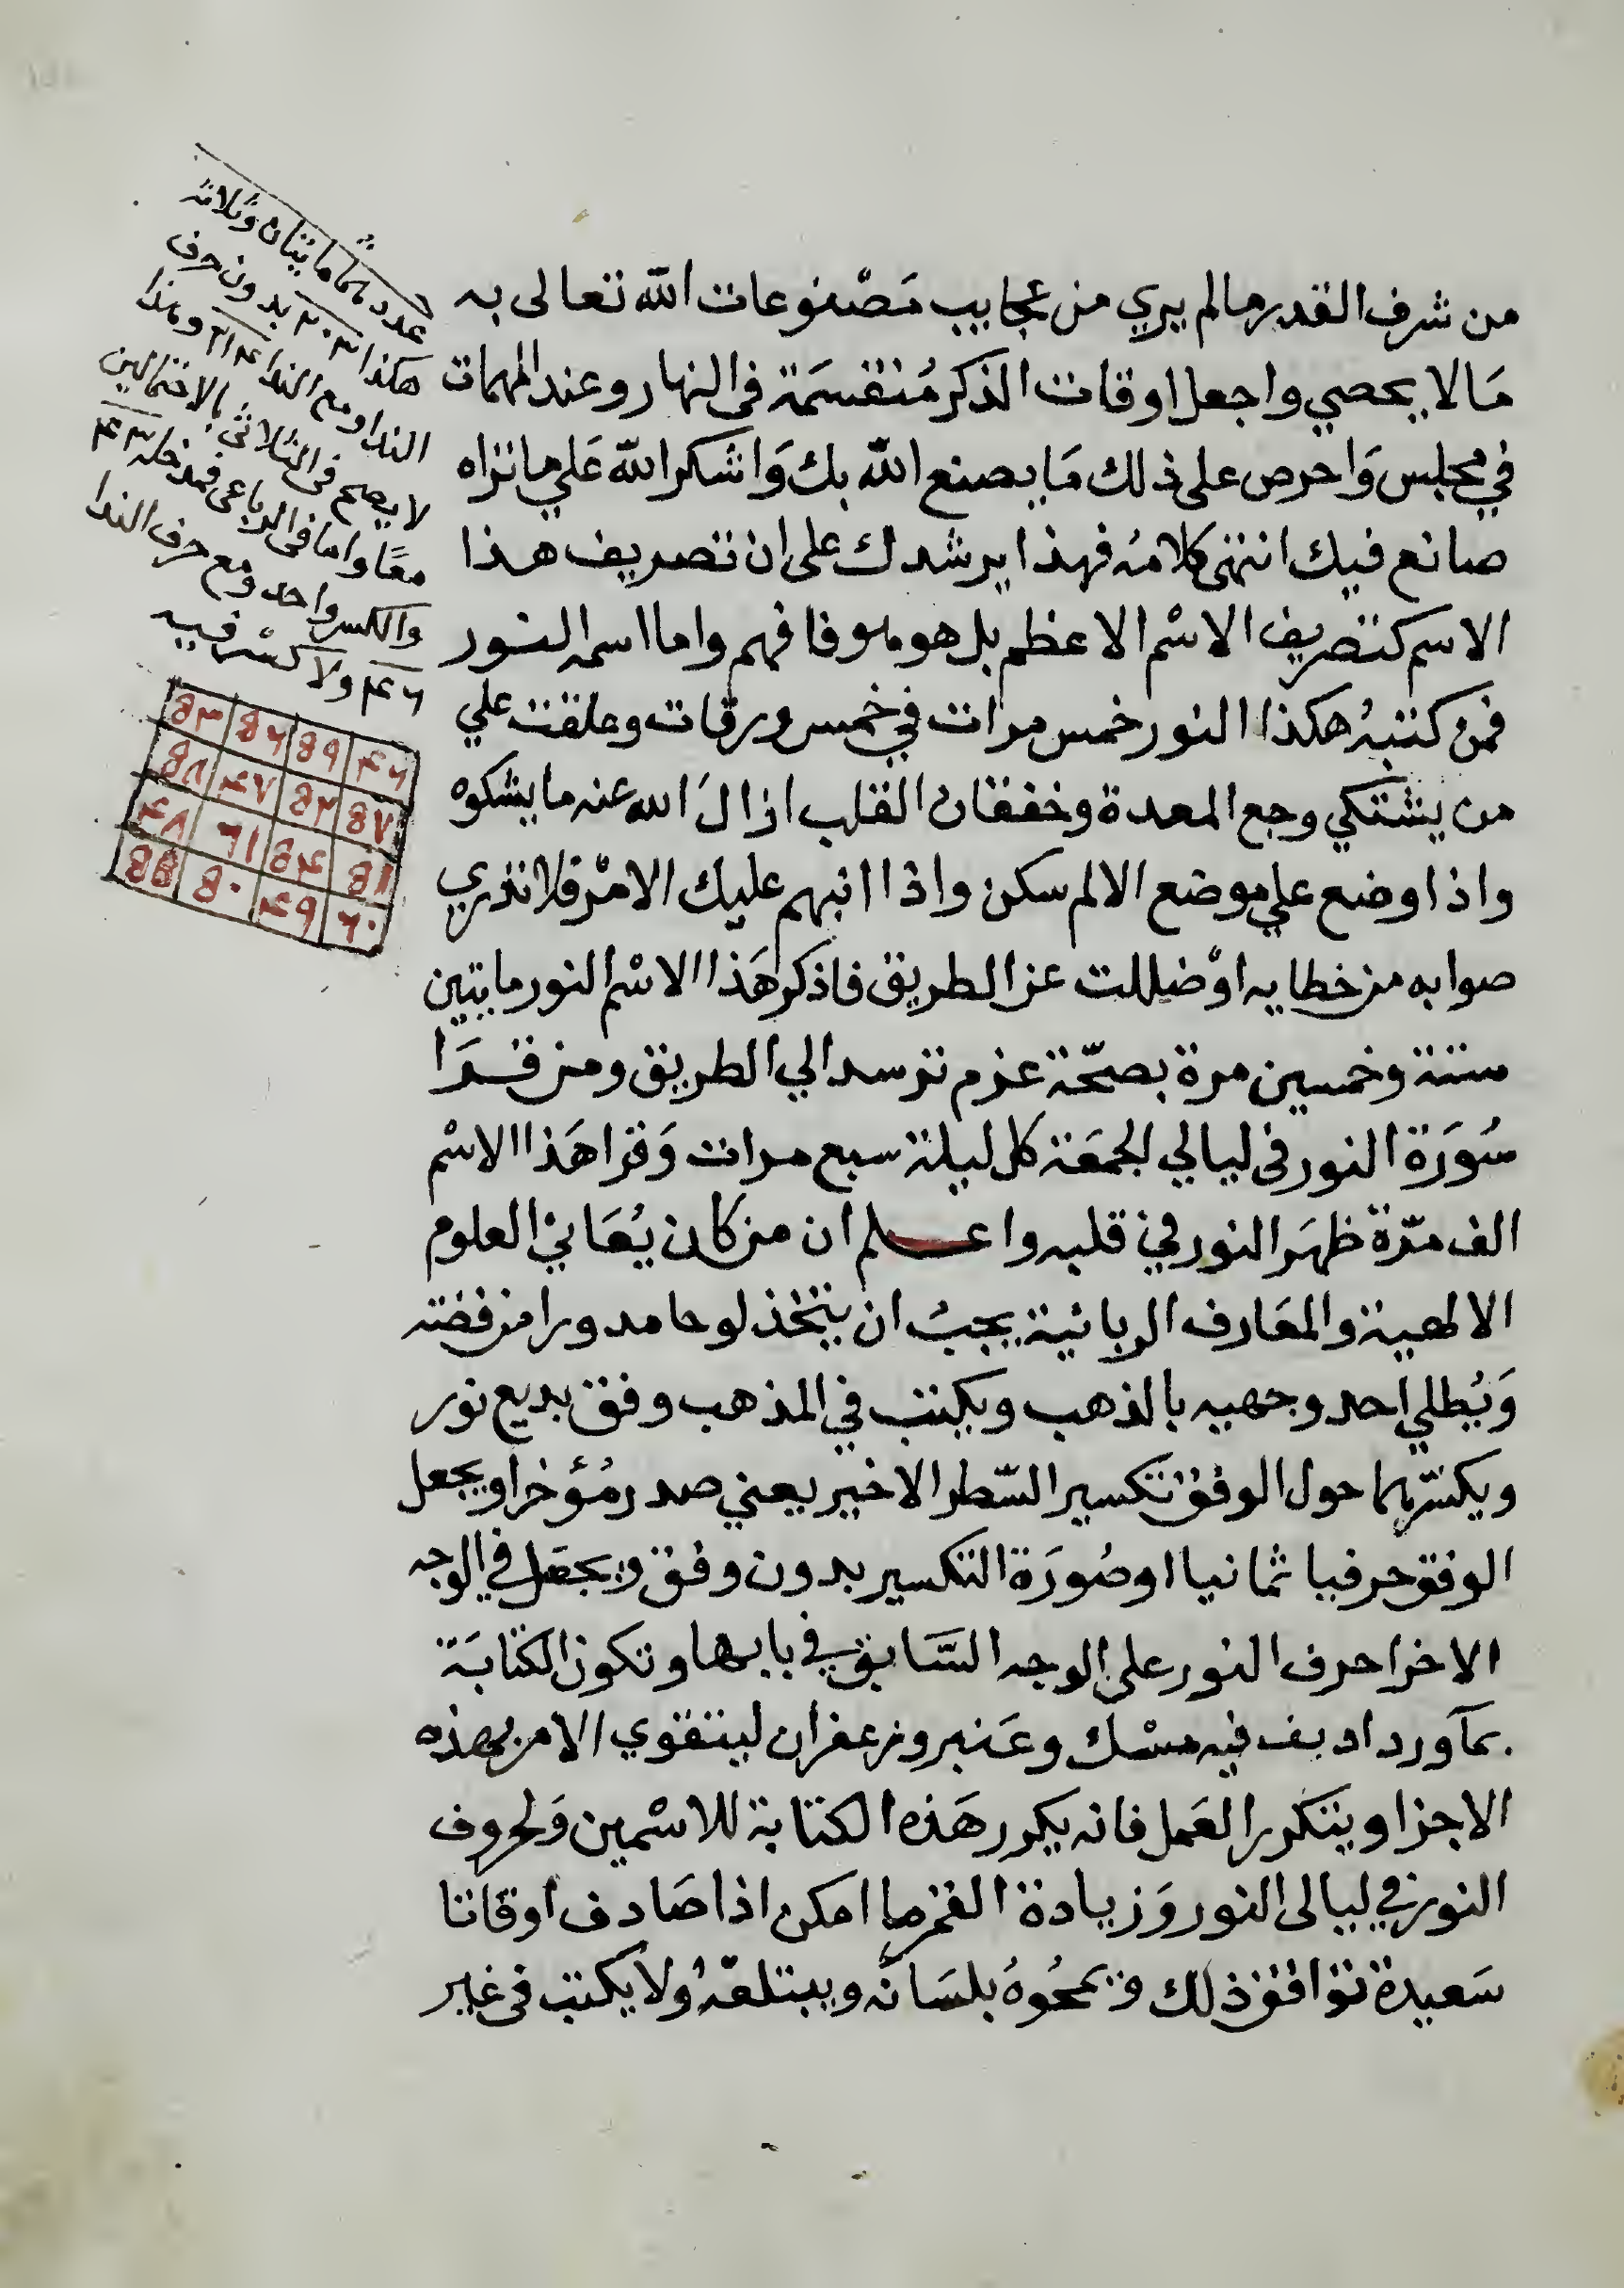 من شرف القدر مالم يري من عجايب مَصْنوعات الله تعالى به
مَا لا يحصي واجعل اوقات الذكر مُنقسَمَة فى النهار وعند المهمات
في مجلس وَاحرص على ذلك مَا يصنع الله بك وَاشكر الله عَلي ما تراه
صانع فيك انتهى كلامُه فهذا يرشدك على ان تصريف هذا
الاسم كتصريف الاسْم الاعظم بل هو هو فافهم واما اسمه النور
فمن كتبهُ هكذا النور خمس مرات في خمس ورقات وعلقت علي
من يشتكي وجع المعدة وخفقان القلب ازالَ الله عنه ما يشكوه
واذا وضع علي موضع الالم سكن واذا انبهم عليك الامْر فلا تدري
صوابه من خطايه اوْ ضللت عن الطريق فاذكر هَذا الاسْم النور مايتين
ستة وخمسين مرة بصحّة عزم ترسد الي الطريق ومن قرَا
سُورَة النور فى ليالي الجمعَة كل ليلة سبع مرات وَقرا هَذا الاسْم
الف مرّة ظهَر النور في قلبه واعلم ان من كان يُعَاني العلوم
الالهية والمعَارف الربانية يجبُ ان يتخذ لوحا مدورا من فضته
وَيُطلي احد وجهيه بالذهب ويكتب في المذهب وفق بديع نور
ويكسّرهما حول الوفق تكسير السّطر الاخير يعني صدر مُؤخرا ويجعل
الوفق حرفيا ثمانيا او صُورَة التكسير بدون وفق ويجعَل في الوجه
الاخر احرف النور على الوجه السَّابق في بابها وتكون الكتابَة
بمآ ورد اديف فيه مسْك وعَنبر وزعفران ليتقوي الامر بهذه
الاجزا ويتكرر العَمل فانه يكرر هَذه الكتابة للاسْمين وَلحروف
النور في ليالى النور وَزيادة القمر ما امكن اذا صَادف اوقاتا
سَعيدة توافق ذلك ويمحُوهُ بلسَانه ويبتلعَهُ ولا يكتب فى غير
عدد هما مايتان وثلاثه
هكذا ٢٠٣ بدون حرف
الندا ومع الندا ٢١٤ وهذا
لا يصح فى الثلاثى بالاحتمالين
معًا واما فى الرباعى فمدخله ٤٣
والكسر واحد ومع حرف الندا
٤٦ ولا كسْر فيه
٤٦ ٥٩ ٥٦ ٥٣
٥٧ ٥٢ ٤٧ ٥٨
٥١ ٥٤ ٦١ ٤٨
٦٠ ٤٩ ٥٠ ٥٥